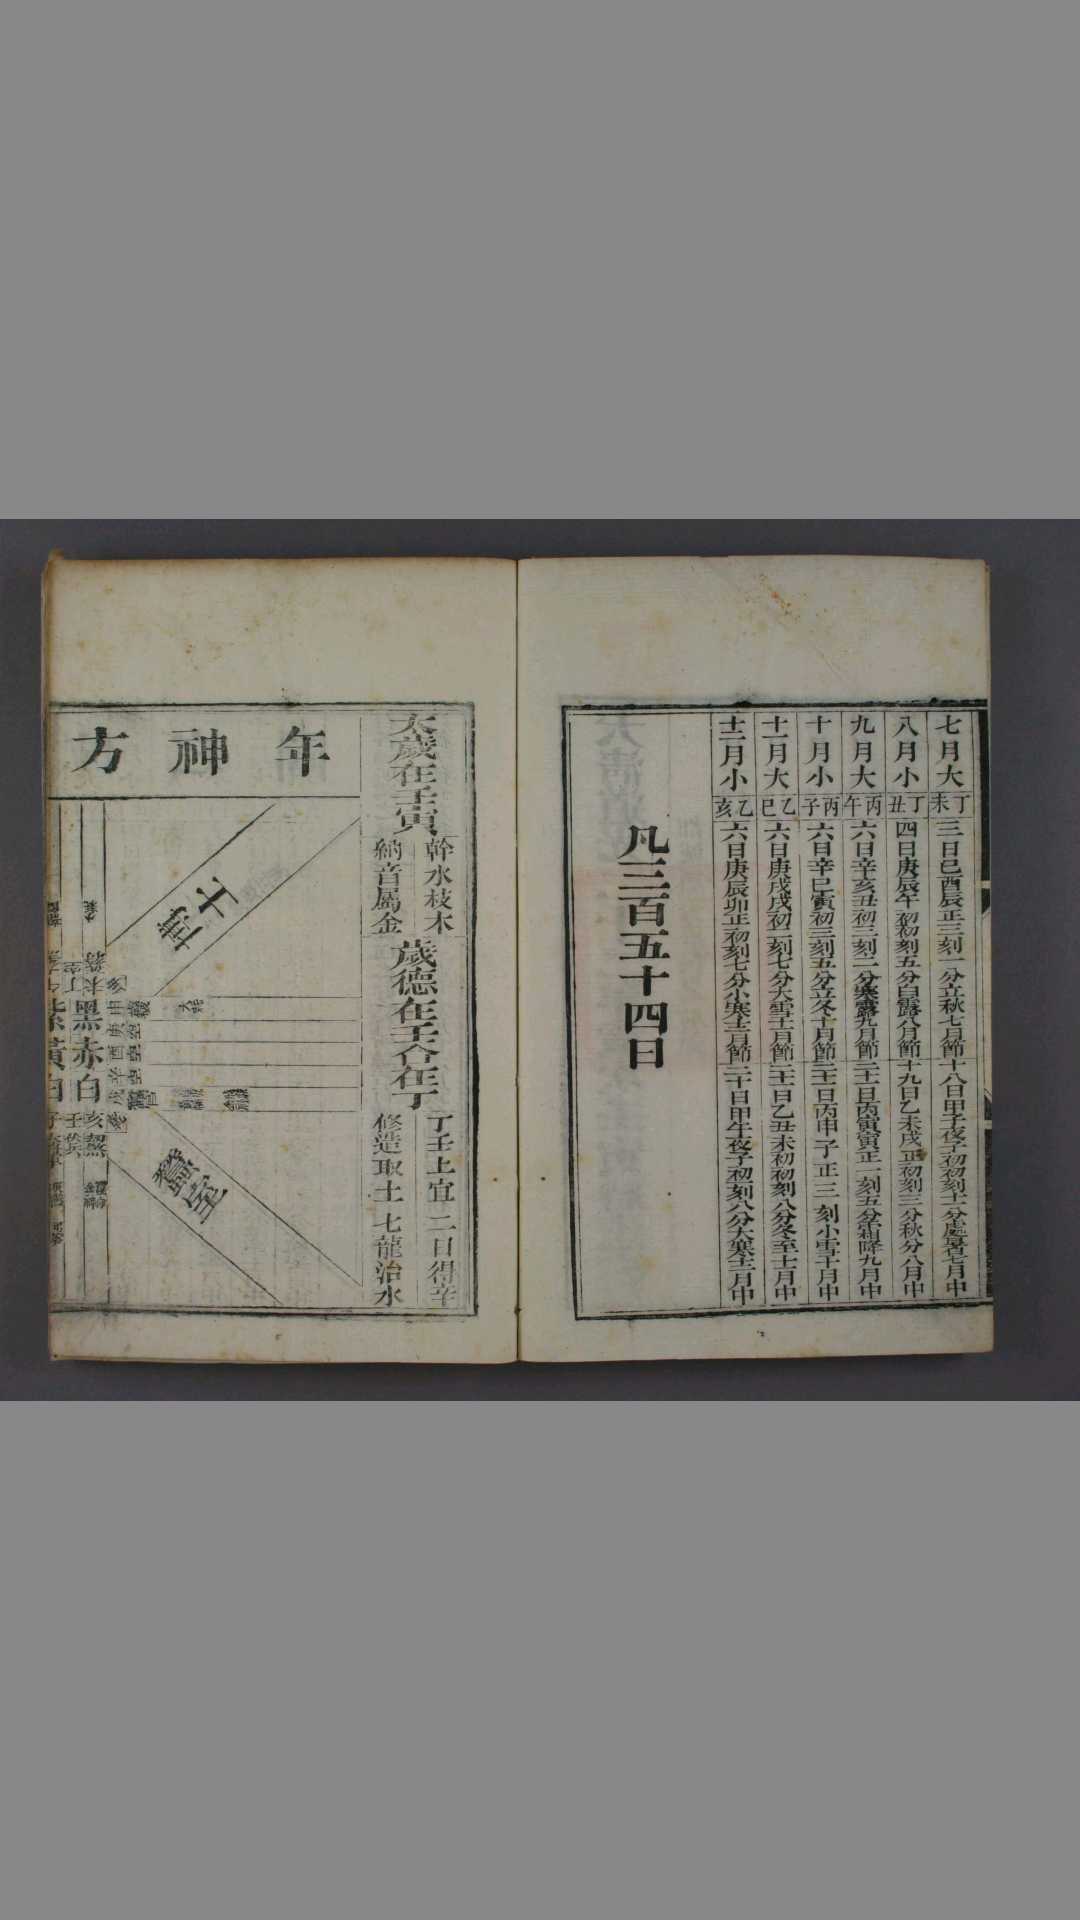 七月大 丁未 三日己酉辰正三刻一分立秋七月節 十八日甲子夜子初初刻十一分處暑七月中
八月小 丁丑 四日庚辰午初初刻五分白露八月節 十九日乙未戌正初刻三分秋分八月中
九月大 丙午 六日辛亥丑初三刻二分寒露九月節 二十一日丙寅寅正一刻五分霜降九月中
十月小 丙子 六日辛巳寅初三刻五分立冬十月節 二十一日丙申子正三刻小雪十月中
十一月大 乙巳 六日庚戌戌初二刻七分大雪十一月節 二十一日乙丑未初初刻八分冬至十一月中
十二月小 乙亥 六日庚辰卯正初刻七分小寒十二月節 二十日甲午夜子初初刻八分大寒十二月中
凡三百五十四日
太歲在壬寅
幹水枝木
納音屬金
歲德在壬合在丁
丁壬上宜
修造取土
二日得辛
七龍治水
年神方
博士
蠶室
黑赤白
紫黃白